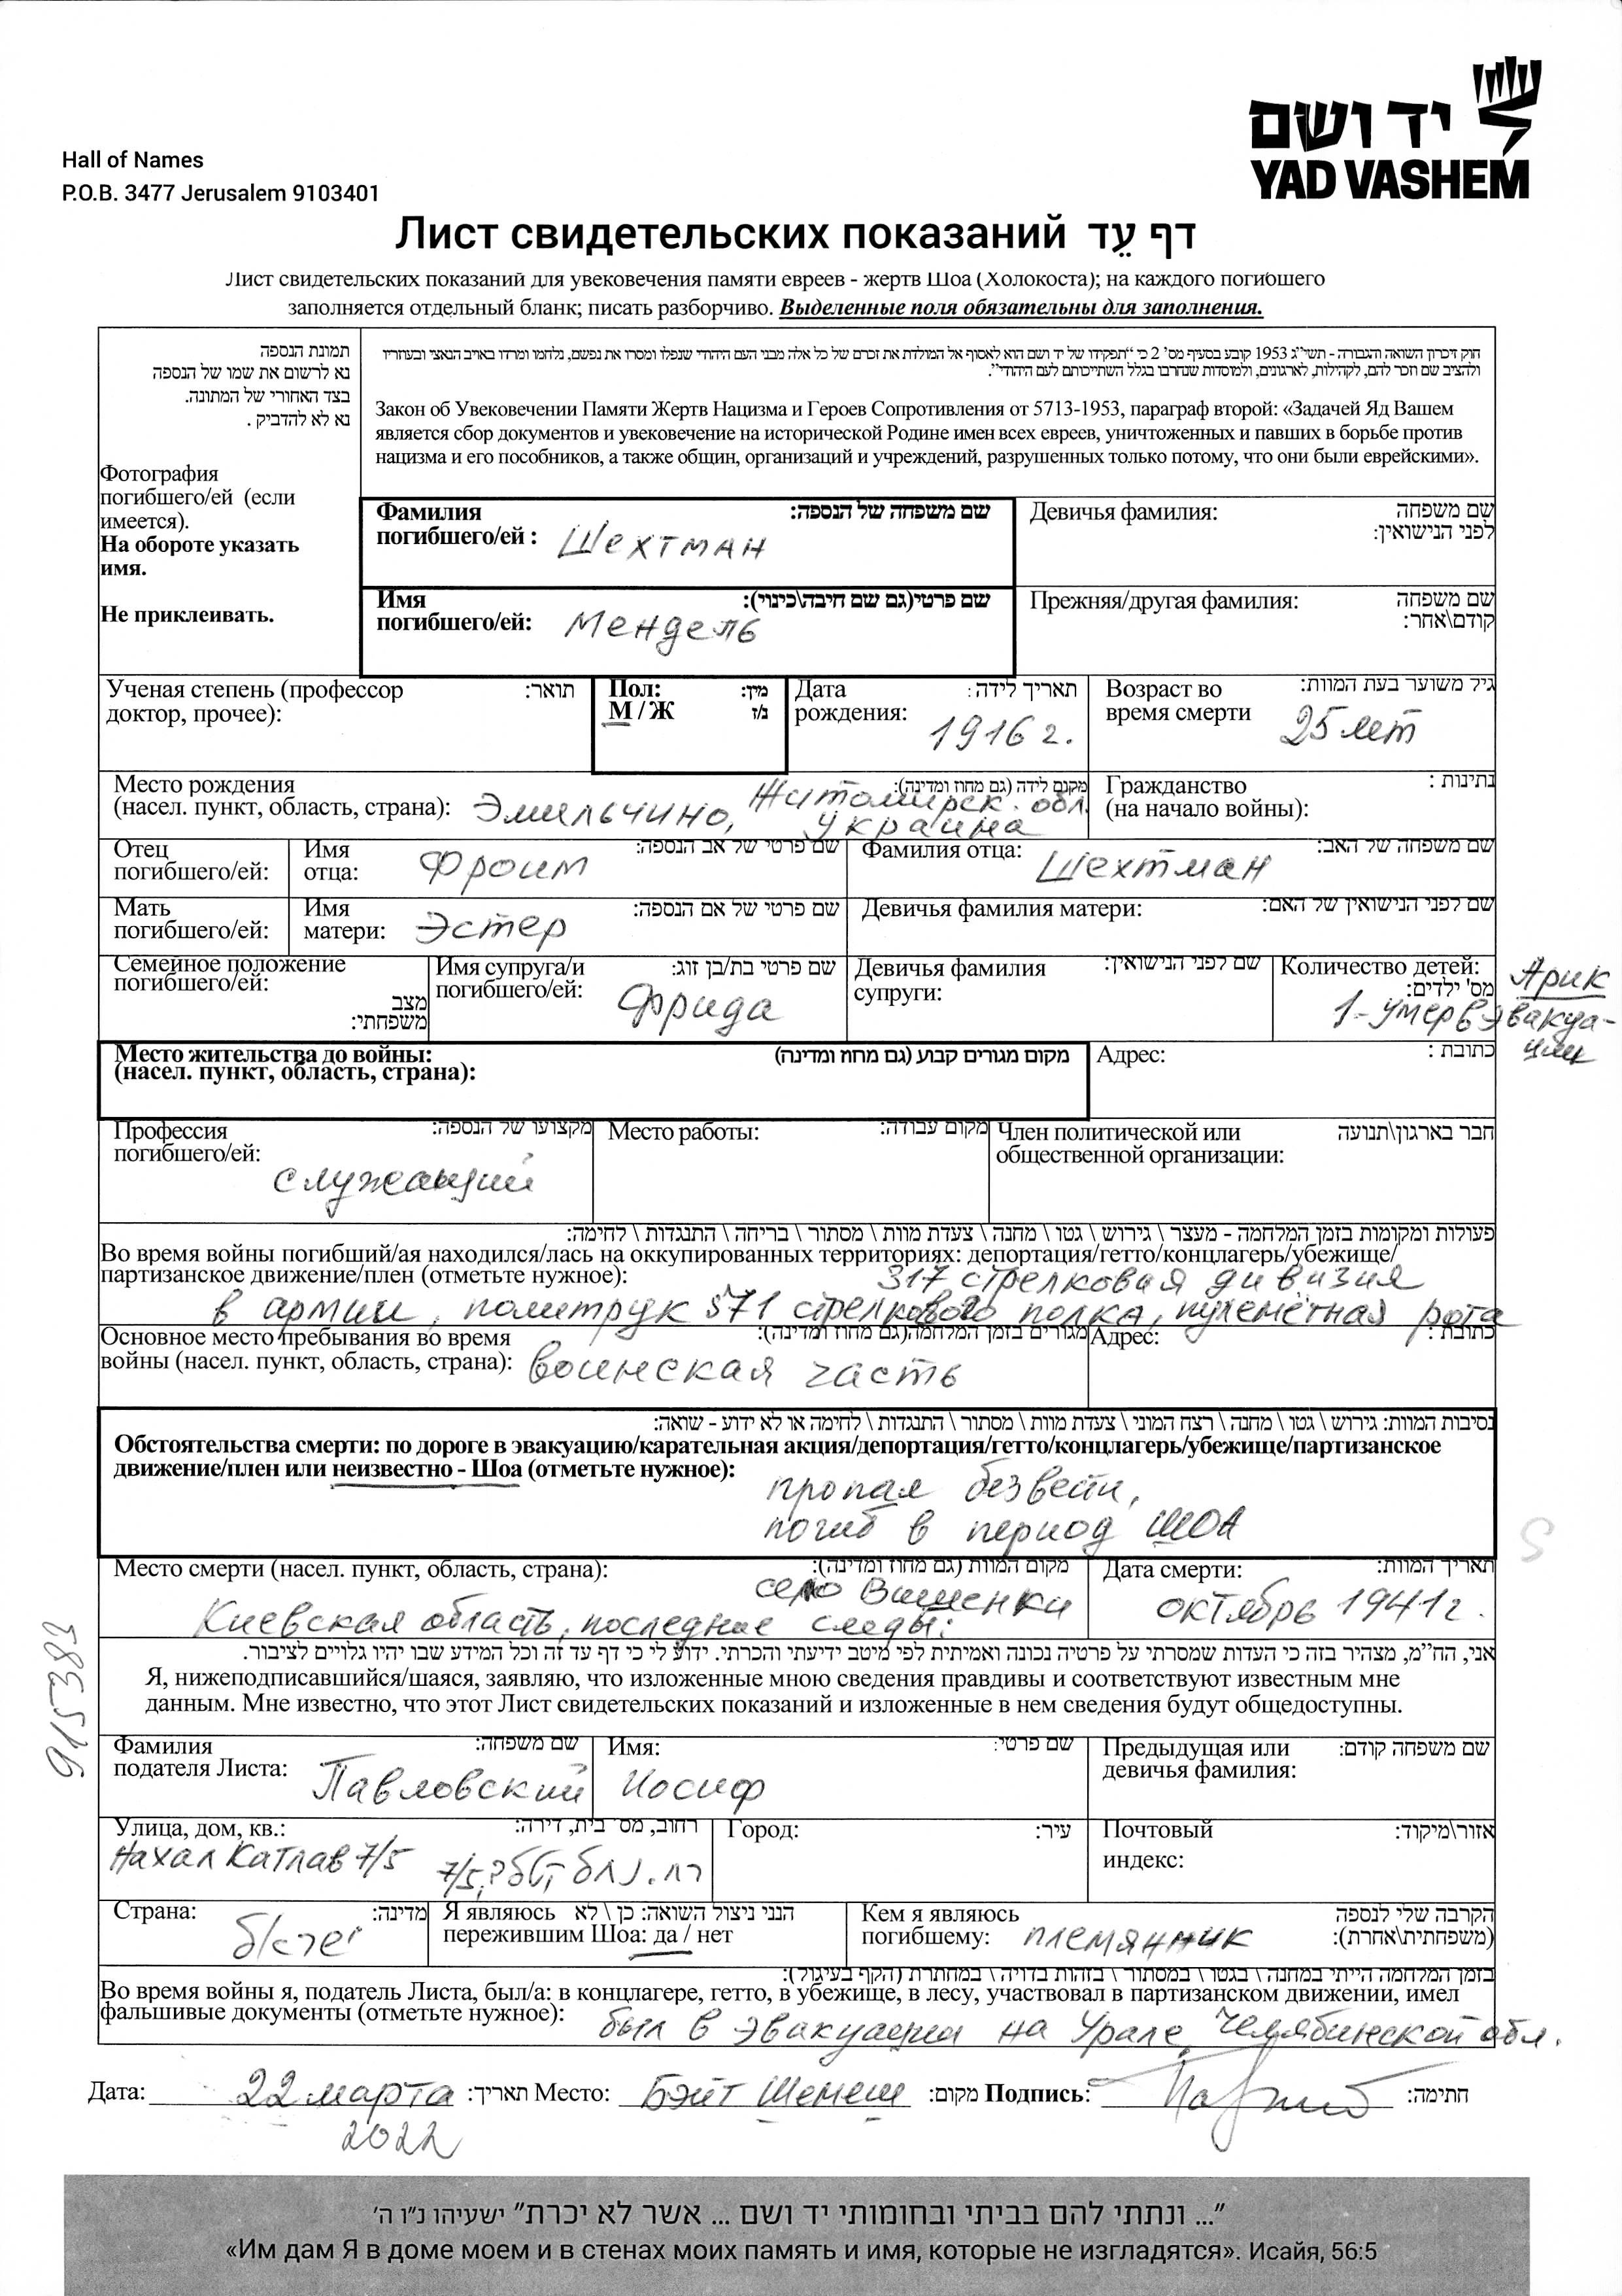 יד ושם
YAD VASHEM
Hall of Names
P.O.B. 3477 Jerusalem 9103401
Лист свидетельских показаний דף עֵד
Лист свидетельских показаний для увековечения памяти евреев - жертв Шоа (Холокоста); на каждого погибшего
заполняется отдельный бланк; писать разборчиво. Выделенные поля обязательны для заполнения.
תמונת הנספה
נא לרשום את שמו של הנספה
בצד האחורי של המתונה.
נא לא להדביק .
Фотография
погибшего/ей (если
имеется).
На обороте указать
имя.
Не приклеивать.
חוק זיכרון השואה והגבורה - תשי"ג 1953 קובע בסעיף מס' 2 כי "תפקידו של יד ושם הוא לאסוף אל המולדת את זכרם של כל אלה מבני העם היהודי שנפלו ומסרו את נפשם, נלחמו ומרדו באויב הנאצי ובעוזריו
ולהציב שם וזכר להם, לקהילות, לארגונים, ולמוסדות שנחרבו בגלל השתייכותם לעם היהודי".
Закон об Увековечении Памяти Жертв Нацизма и Героев Сопротивления от 5713-1953, параграф второй: «Задачей Яд Вашем
является сбор документов и увековечение на исторической Родине имен всех евреев, уничтоженных и павших в борьбе против
нацизма и его пособников, а также общин, организаций и учреждений, разрушенных только потому, что они были еврейскими».
Фамилия погибшего/ей : Шехтман שם משפחה של הנספה:
Девичья фамилия: שם משפחה לפני הנישואין:
Имя погибшего/ей: Мендель שם פרטי(גם שם חיבה\כינוי):
Прежняя/другая фамилия: שם משפחה קודם\אחר:
Ученая степень (профессор доктор, прочее): תואר:
Пол: М / Ж מין: ז/נ
Дата рождения: 1916 г. תאריך לידה:
Возраст во время смерти 25 лет גיל משוער בעת המוות:
Место рождения (насел. пункт, область, страна): Эмильчино, Житомирск. обл. Украина מקום לידה (גם מחוז ומדינה):
Гражданство (на начало войны): נתינות :
Отец погибшего/ей: Имя отца: Фроим שם פרטי של אב הנספה:
Фамилия отца: Шехтман שם משפחה של האב:
Мать погибшего/ей: Имя матери: Эстер שם פרטי של אם הנספה:
Девичья фамилия матери: שם לפני הנישואין של האם:
Семейное положение погибшего/ей: מצב משפחתי:
Имя супруга/и погибшего/ей: Фрида שם פרטי בת/בן זוג:
Девичья фамилия супруги: שם לפני הנישואין:
Количество детей: מס' ילדים: Арик
1-умер в эвакуа-
ции
Место жительства до войны: (насел. пункт, область, страна): מקום מגורים קבוע (גם מחוז ומדינה)
Адрес: כתובת :
Профессия погибшего/ей: служащий מקצועו של הנספה:
Место работы: מקום עבודה:
Член политической или общественной организации: חבר בארגון\תנועה
פעולות ומקומות בזמן המלחמה - מעצר \ גירוש \ גטו \ מחנה \ צעדת מוות \ מסתור \ בריחה \ התנגדות \ לחימה:
Во время войны погибший/ая находился/лась на оккупированных территориях: депортация/гетто/концлагерь/убежище/
партизанское движение/плен (отметьте нужное): 317 стрелковая дивизия
в армии, политрук 571 стрелкового полка, пулемётная рота
Основное место пребывания во время войны (насел. пункт, область, страна): воинская часть מגורים בזמן המלחמה(גם מחוז ומדינה):
Адрес: כתובת :
נסיבות המוות: גירוש \ גטו \ מחנה \ רצח המוני \ צעדת מוות \ מסתור \ התנגדות \ לחימה או לא ידוע - שואה:
Обстоятельства смерти: по дороге в эвакуацию/карательная акция/депортация/гетто/концлагерь/убежище/партизанское
движение/плен или неизвестно - Шоа (отметьте нужное):
пропал безвести,
погиб в период ШОА
S
Место смерти (насел. пункт, область, страна): מקום המוות (גם מחוז ומדינה):
село Вишенки
Киевская область, последние следы:
Дата смерти: תאריך המוות:
октябрь 1941г.
915383
אני, הח"מ, מצהיר בזה כי העדות שמסרתי על פרטיה נכונה ואמיתית לפי מיטב ידיעתי והכרתי. ידוע לי כי דף עד זה וכל המידע שבו יהיו גלויים לציבור.
Я, нижеподписавшийся/шаяся, заявляю, что изложенные мною сведения правдивы и соответствуют известным мне
данным. Мне известно, что этот Лист свидетельских показаний и изложенные в нем сведения будут общедоступны.
Фамилия подателя Листа: Павловский שם משפחה:
Имя: Иосиф שם פרטי:
Предыдущая или девичья фамилия: שם משפחה קודם:
Улица, дом, кв.: רחוב, מס' בית, דירה:
Нахал Катлав 7/5
Город: עיר:
Почтовый индекс: אזור\מיקוד:
Страна: מדינה:
Я являюсь пережившим Шоа: да / нет הנני ניצול השואה: כן \ לא
Кем я являюсь погибшему: племянник הקרבה שלי לנספה (משפחתית\אחרת):
בזמן המלחמה הייתי במחנה \ בגטו \ במסתור \ בזהות בדויה \ במחתרת (הקף בעיגול):
Во время войны я, податель Листа, был/а: в концлагере, гетто, в убежище, в лесу, участвовал в партизанском движении, имел
фальшивые документы (отметьте нужное): был в эвакуации на Урале, Челябинской обл.
Дата: 22 марта 2022 תאריך: Место: Бэйт Шемеш מקום: Подпись: חתימה:
"... ונתתי להם בביתי ובחומותי יד ושם ... אשר לא יכרת" ישעיהו נ"ו ה'
«Им дам Я в доме моем и в стенах моих память и имя, которые не изгладятся». Исайя, 56:5